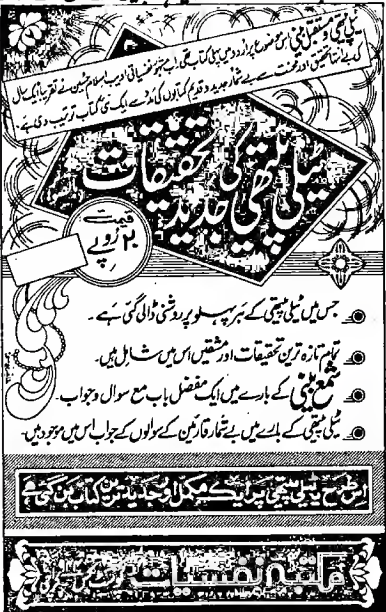 ٹیلی پیتھی و مستقبل بینی اس موضوع پر اردو میں پہلی کتاب تھی اب مشہور نفسیاتی ادیب اسلام حسین نے تقریباً ایک سال
کی بے انتہا تحقیق اور محنت سے بے شمار جدید و قدیم کتابوں کی مدد سے ایک نئی کتاب ترتیب دی ہے۔
ٹیلی پیتھی کی جدید تحقیقات
قیمت
۲۰ روپے
جس میں ٹیلی پیتھی کے ہر پہلو پر روشنی ڈالی گئی ہے۔
تمام تازہ ترین تحقیقات اور مشقیں اس میں شامل ہیں۔
شمع بینی کے بارے میں ایک مفصل باب مع سوال و جواب۔
ٹیلی پیتھی کے بارے میں بے شمار قارئین کے سوالوں کے جواب اس میں موجود ہیں۔
اس طرح یہ ٹیلی پیتھی پر ایک مکمل اور جدید ترین کتاب بن گئی ہے
مکتبہ نفسیات